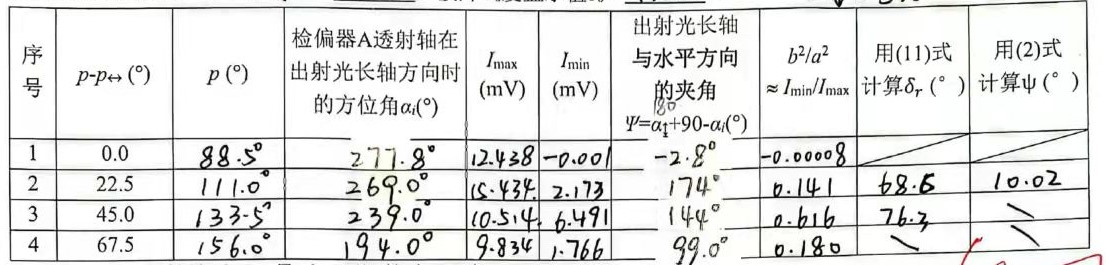 序号 p-p↔ (°) p (°) 检偏器A透射轴在出射光长轴方向时的方位角αᵢ(°) Imax (mV) Imin (mV) 出射光长轴与水平方向的夹角 Ψ=α1+90-αᵢ(°) 180 b²/a² ≈ Imin/Imax 用(11)式计算δr (°) 用(2)式计算ψ (°)
1 0.0 88.5° 277.8° 12.438 -0.001 -2.8° -0.00008
2 22.5 111.0° 269.0° 15.434 2.173 174° 0.141 68.6 10.02
3 45.0 133.5° 239.0° 10.514 6.491 144° 0.616 76.3 \
4 67.5 156.0° 194.0° 9.834 1.766 99.0° 0.180 \ \